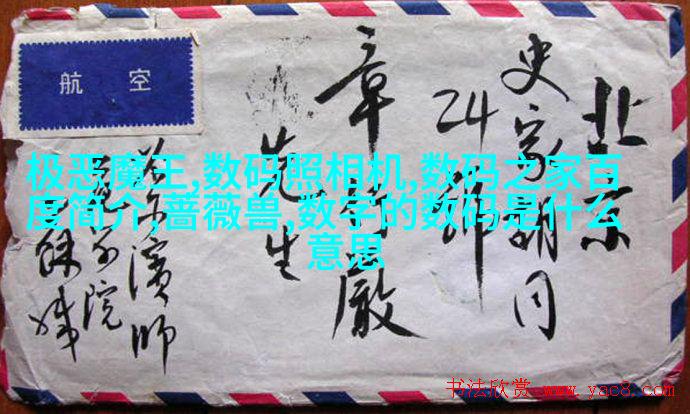 航空
极恶魔王,数码照相机,数码之家百
度简介,蔷薇兽,数字的数码是什么
意思
北京
史家胡同
24
章
先生
尔滨师
院
书法欣赏 www.yac8.com